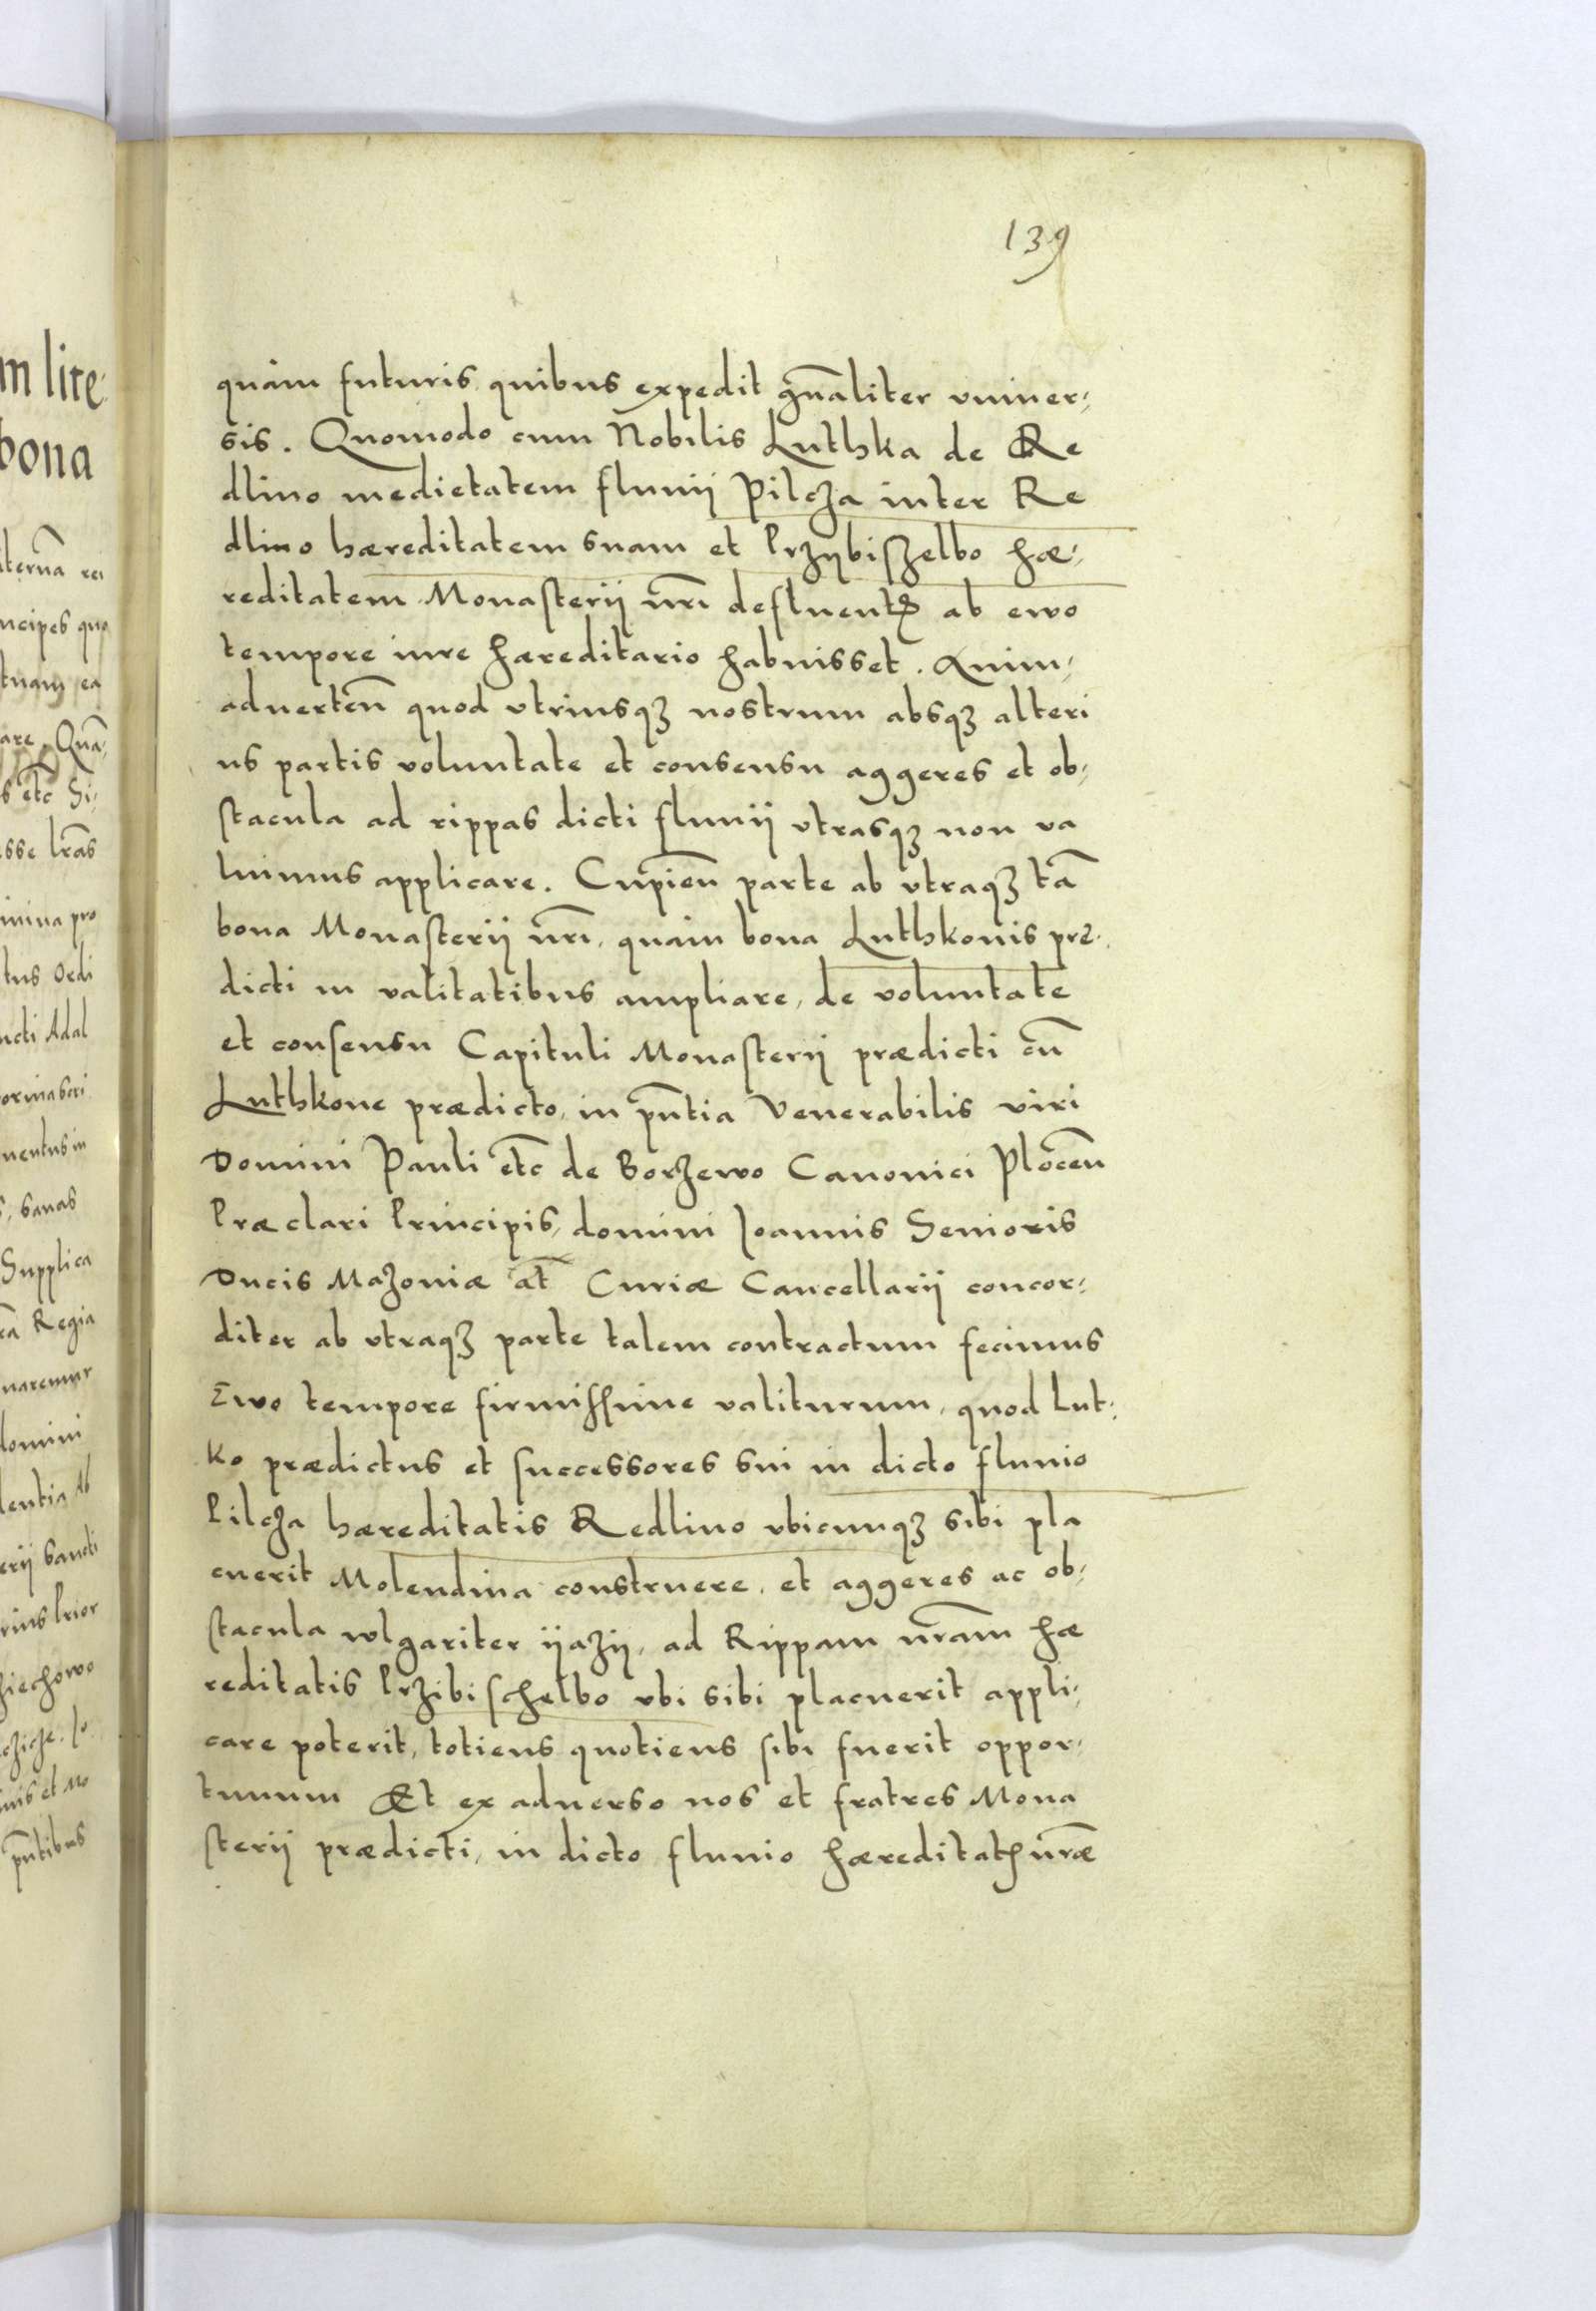 139
quàm futuris quibus expedit gn̄aliter vniuer:
sis. Quomodo cum Nobilis Luthka de Re
dlino medietatem fluuij Pilcza inter Re
dlino hæreditatem suam et Przybiszelbo hæ:
reditatem Monasterij nr̄i defluentꝫ ab ewo
tempore iure hæreditario habuisset. Anim:
aduerten̄ quod vtriusqꝫ nostrum absqꝫ alteri
us partis voluntate et consensu aggeres et ob:
stacula ad rippas dicti fluuij vtrasqꝫ non va
luimus applicare. Cupien̄ parte ab vtraqꝫ tā
bona Monasterij nr̄i, quàm bona Luthkonis præ:
dicti in valitatibus ampliare, de voluntate
et consensu Capituli Monasterij prædicti cū
Luthkone prædicto, in pn̄tia Venerabilis viri
Domini Pauli etc̄ de Borzewo Canonici Plocen̄
Præclari Principis, domini Joannis Senioris
Ducis Mazoniæ at̄ Curiæ Cancellarij concor:
diter ab vtraqꝫ parte talem contractum fecimus
Ewo tempore firmissime valiturum, quod Lut:
ko prædictus et successores sui in dicto fluuio
Pilcza hæreditatis Redlino vbicunqꝫ sibi pla
cuerit Molendina construere, et aggeres ac ob:
stacula wlgariter ijazij, ad Rippam nr̄am hæ
reditatis Przibischelbo vbi sibi placuerit appli:
care poterit, totiens quotiens sibi fuerit oppor:
tunum Et ex aduerso nos et fratres Mona
sterij prædicti, in dicto fluuio hæreditatꝭ nr̄æ